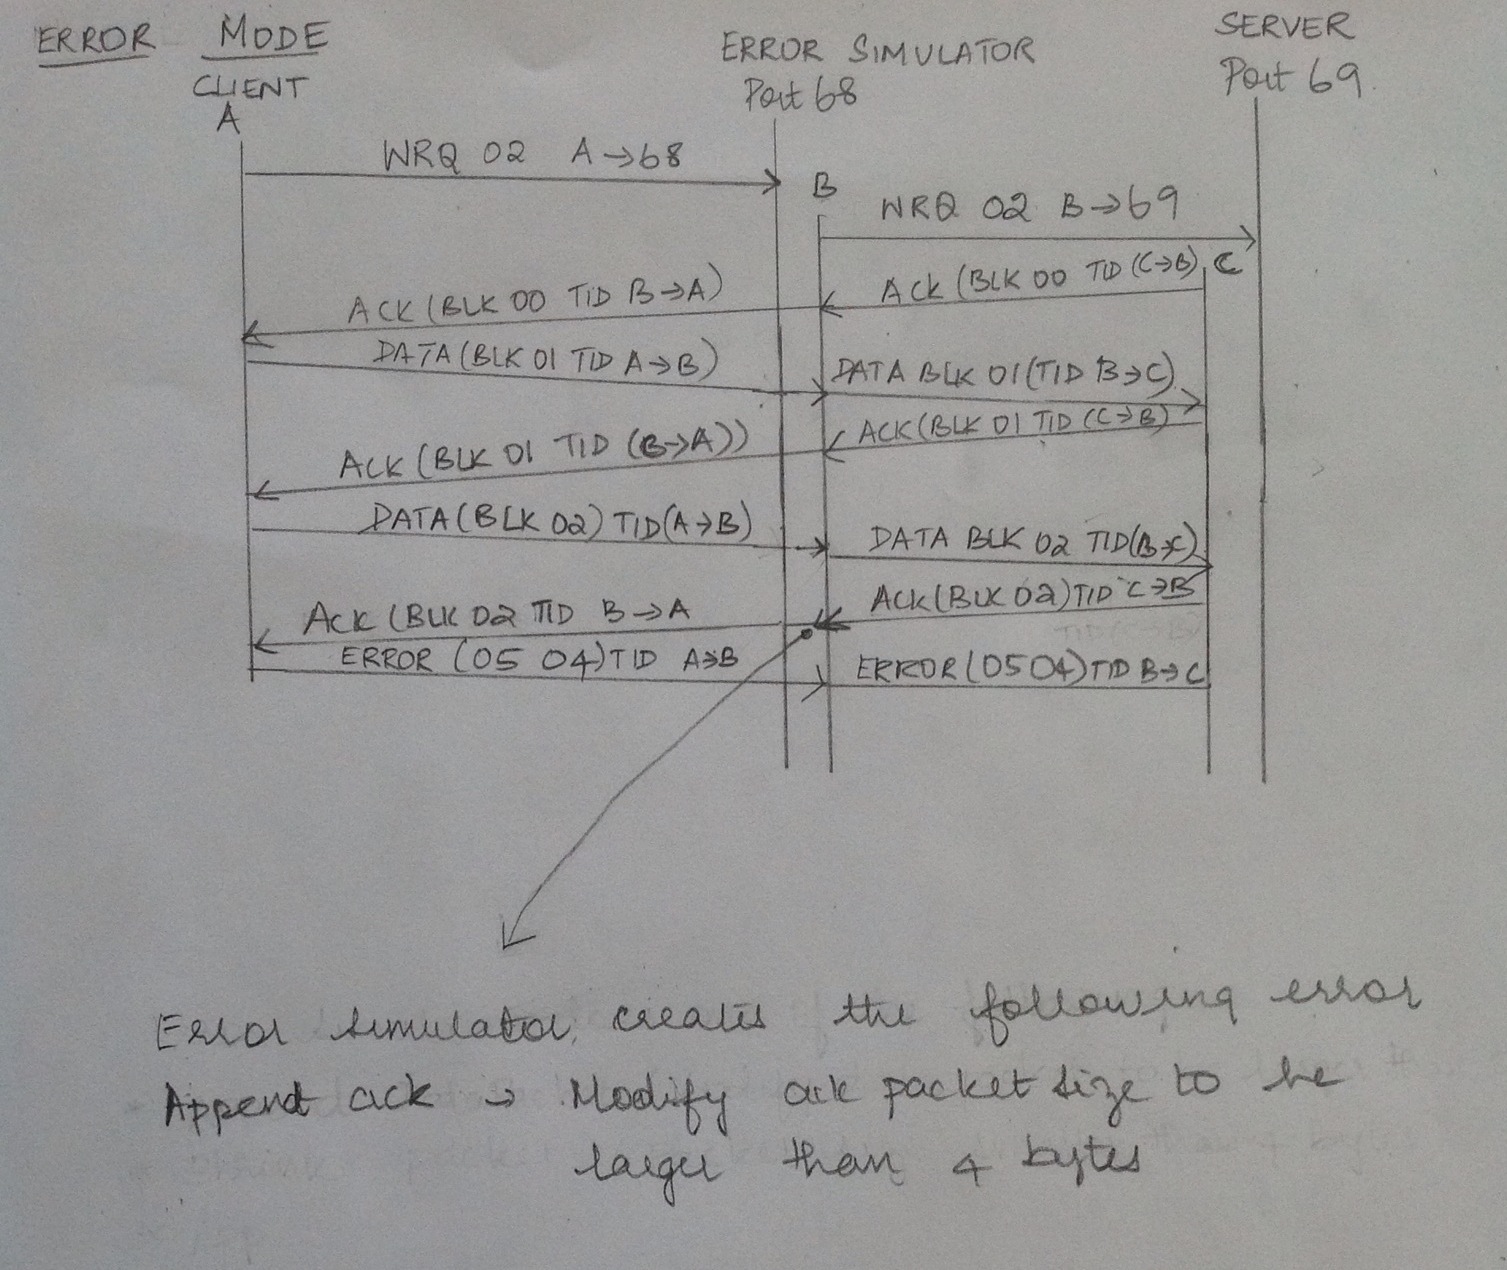 ERROR MODE
CLIENT
A
ERROR SIMULATOR
Port 68
SERVER
Port 69
WRQ 02 A→68
B
WRQ 02 B→69
ACK (BLK 00 TID (C→B)
C
ACK (BLK 00 TID B→A)
DATA (BLK 01 TID A→B)
DATA BLK 01 (TID B→C)
ACK (BLK 01 TID (C→B)
ACK (BLK 01 TID (B→A))
DATA (BLK 02) TID (A→B)
DATA BLK 02 TID (B→C)
ACK (BLK 02) TID C→B
ACK (BLK 02 TID B→A
ERROR (05 04) TID A→B
ERROR (05 04) TID B→C
Error simulator creates the following error
Append ack → Modify ack packet size to be
larger than 4 bytes